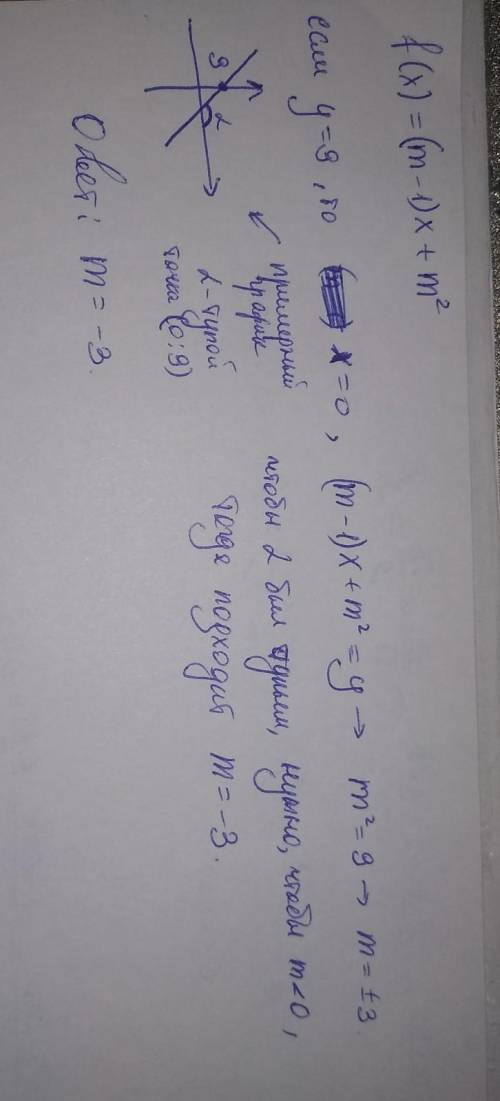 f(x) = (m-1)x + m²
если y=9, то x=0, (m-1)x + m² = y → m² = 9 → m = ±3.
9
α
примерный
график
α - тупой
точка (0; 9)
чтобы α был тупым, нужно, чтобы m<0,
тогда подходит m = -3.
Ответ: m = -3.